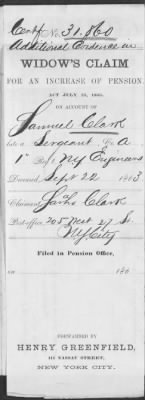 Certf No. 31.860
Additional Evidence in
WIDOW'S CLAIM
FOR AN INCREASE OF PENSION
ACT JULY 25, 1866.
ON ACCOUNT OF
Samuel Clark
Late a Sergeant Co A
1" Regt NY Engineers
Deceased Sept 22 1863
Claimant Clark
Post-office 205 West 27 St.
NY City
Filed in Pension Office,
on 186
FORWARDED BY
HENRY GREENFIELD,
NASSAU STREET,
NEW YORK CITY.